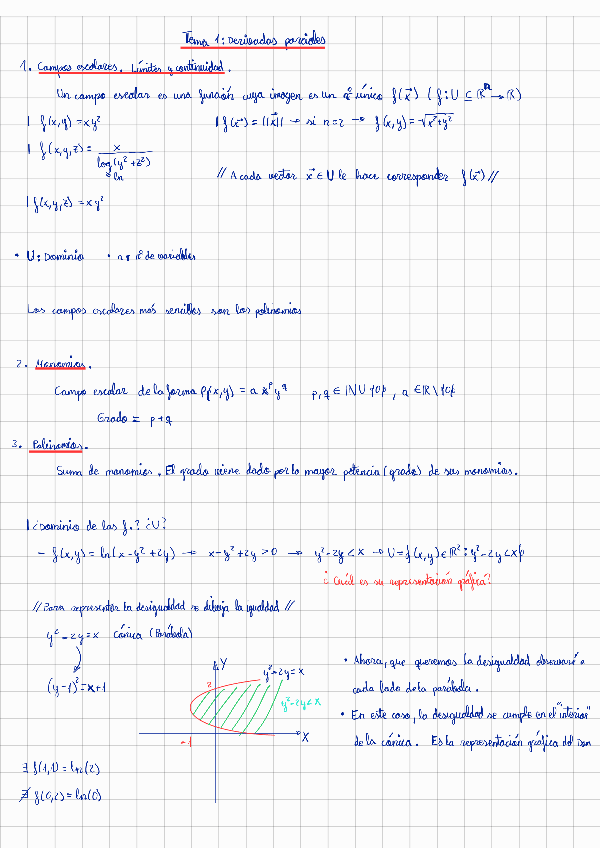 Tema 1: Derivadas parciales
1. Campos escalares. Límites y continuidad.
Un campo escalar es una función cuya imagen es un nº único f(x⃗) (f: U ⊆ ℝⁿ → ℝ)
| f(x,y) = xy²
| f(x⃗) = ||x⃗|| → si n=2 → f(x,y) = √x²+y²
| f(x,y,z) = x / log(y²+z²)
ln
// A cada vector x⃗ ∈ U le hace corresponder f(x⃗) //
| f(x,y,z) = xy²
• U: Dominio • n: nº de variables
Los campos escalares más sencillos son los polinomios
2. Monomios.
Campo escalar de la forma P(x,y) = a x^p y^q p,q ∈ ℕ∪{0}, a ∈ ℝ\{0}
Grado = p+q
3. Polinomios.
Suma de monomios. El grado viene dado por la mayor potencia (grado) de sus monomios.
| ¿Dominio de las f.? ¿U?
- f(x,y) = ln(x-y²+2y) → x-y²+2y>0 → y²-2y<x → U={(x,y)∈ℝ²: y²-2y<x}
¿Cuál es su representación gráfica?
// Para representar la desigualdad se dibuja la igualdad //
y²-2y=x Cónica (Parábola)
(y-1)²=x+1
Y
2
y²-2y=x
y²-2y<x
-1
X
• Ahora, que queremos la desigualdad observaré a
cada lado de la parábola.
• En este caso, la desigualdad se cumple en el "interior"
de la cónica. Es la representación gráfica del Dom
∃ f(1,1) = ln(2)
∄ f(0,2) = ln(0)